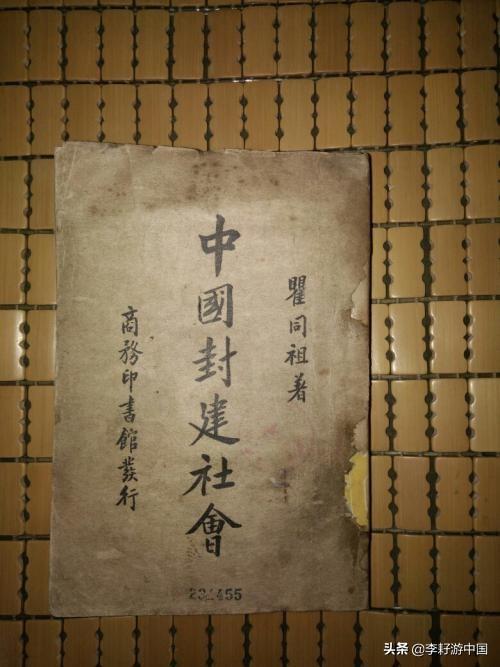 瞿同祖著
中國封建社會
商務印書館發行
头条 @李好游中国